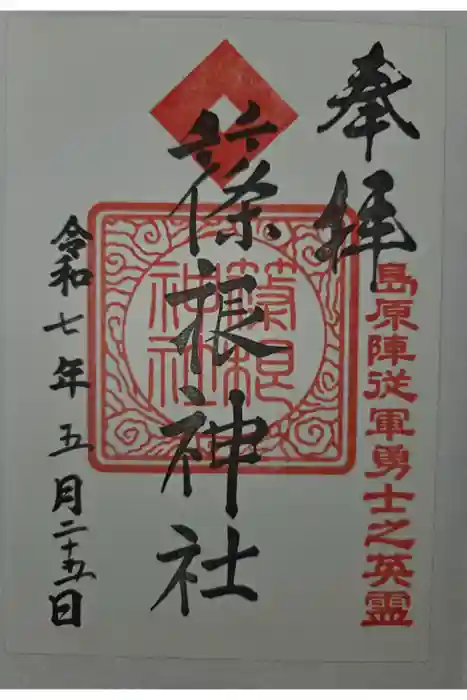 奉拝
島原陣従軍勇士之英霊
篠根神社
篠根
神社
令和七年五月二十五日